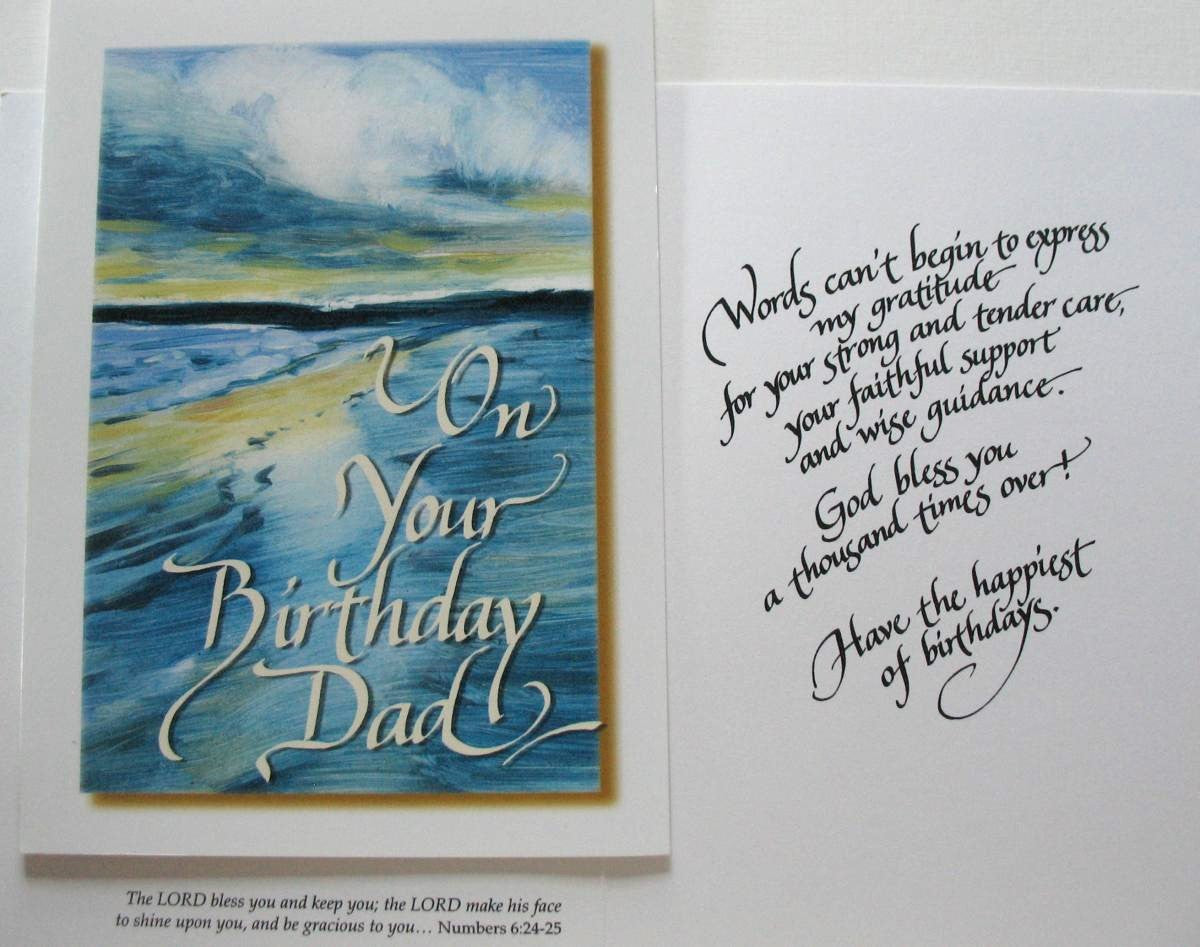 On
Your
Birthday
Dad
The LORD bless you and keep you; the LORD make his face
to shine upon you, and be gracious to you... Numbers 6:24-25
Words can't begin to express
my gratitude
for your strong and tender care,
your faithful support
and wise guidance.
God bless you
a thousand times over!
Have the happiest
of birthdays.